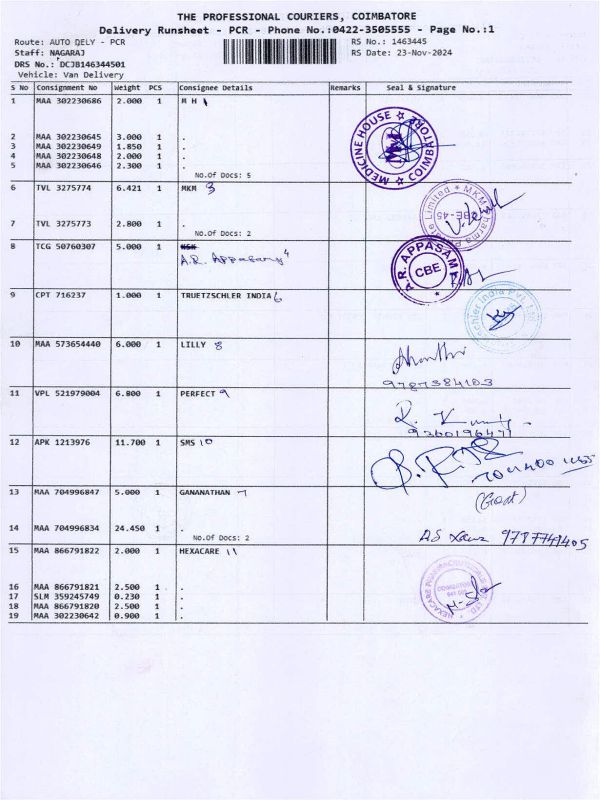 THE PROFESSIONAL COURIERS, COIMBATORE
Delivery Runsheet - PCR - Phone No.:0422-3505555 - Page No.:1
Route: AUTO DELY - PCR RS No.: 1463445
Staff: NAGARAJ RS Date: 23-Nov-2024
DRS No.: DCJB146344501
Vehicle: Van Delivery
S No Consignment No Weight PCS Consignee Details Remarks Seal & Signature
1 MAA 302230686 2.000 1 M H
MEDICINE HOUSE COIMBATORE
2 MAA 302230645 3.000 1 .
3 MAA 302230649 1.850 1 .
4 MAA 302230648 2.000 1 .
5 MAA 302230646 2.300 1 .
No.Of Docs: 5
6 TVL 3275774 6.421 1 MKM 3
7 TVL 3275773 2.800 1 .
No.Of Docs: 2
8 TCG 50760307 5.000 1
A.R. Appasamy 4
A.R. APPASAMY CBE
9 CPT 716237 1.000 1 TRUETZSCHLER INDIA 6
10 MAA 573654440 6.000 1 LILLY 8
9787384103
11 VPL 521979004 6.800 1 PERFECT 9
9360196471
12 APK 1213976 11.700 1 SMS 10
13 MAA 704996847 5.000 1 GANANATHAN 7
14 MAA 704996834 24.450 1 .
No.Of Docs: 2
9787741405
15 MAA 866791822 2.000 1 HEXACARE 11
16 MAA 866791821 2.500 1 .
17 SLM 359245749 0.230 1 .
18 MAA 866791820 2.500 1 .
19 MAA 302230642 0.900 1 .